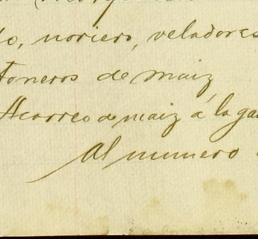 noriero, veladores
toneros de maiz,
Acarreo de maiz á la ga
Al numero